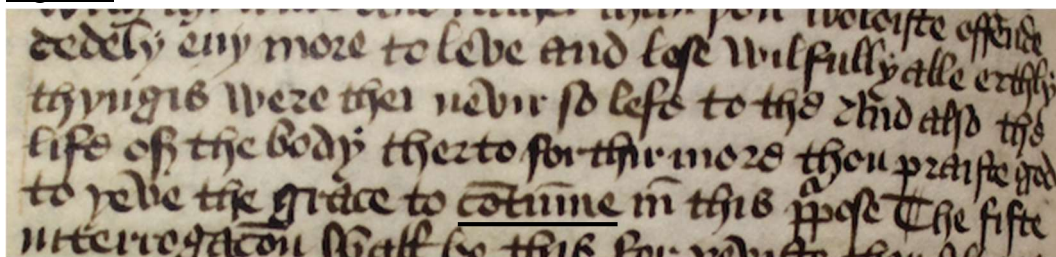 more than you woldiste offende
dedely eny more to leve and lese wilfully alle erthly
thyngis were thei nevir so lefe to the And also the
life of the body therto forthirmore thou praiste god
to yeve the grace to cōtinue in̄ this ꝓpose The fifte
interrogacōn shall be this For